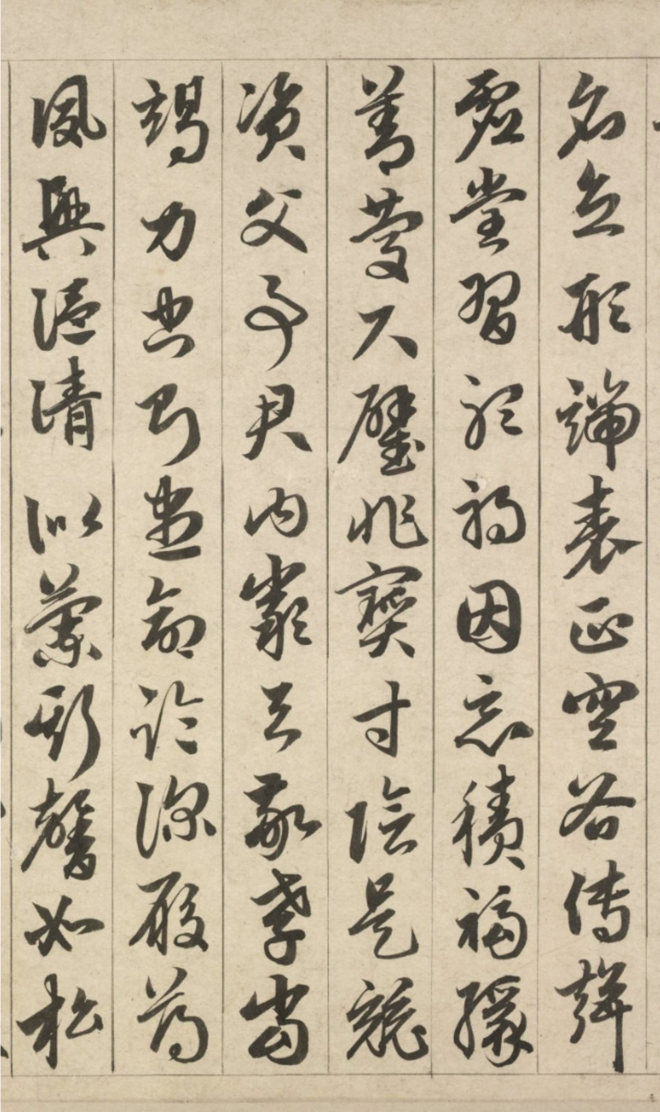 名立形端表正空谷傳聲
虛堂習聽禍因惡積福緣
善慶尺璧非寶寸陰是競
資父事君曰嚴与敬孝當
竭力忠則盡命臨深履薄
夙興溫清似蘭斯馨如松